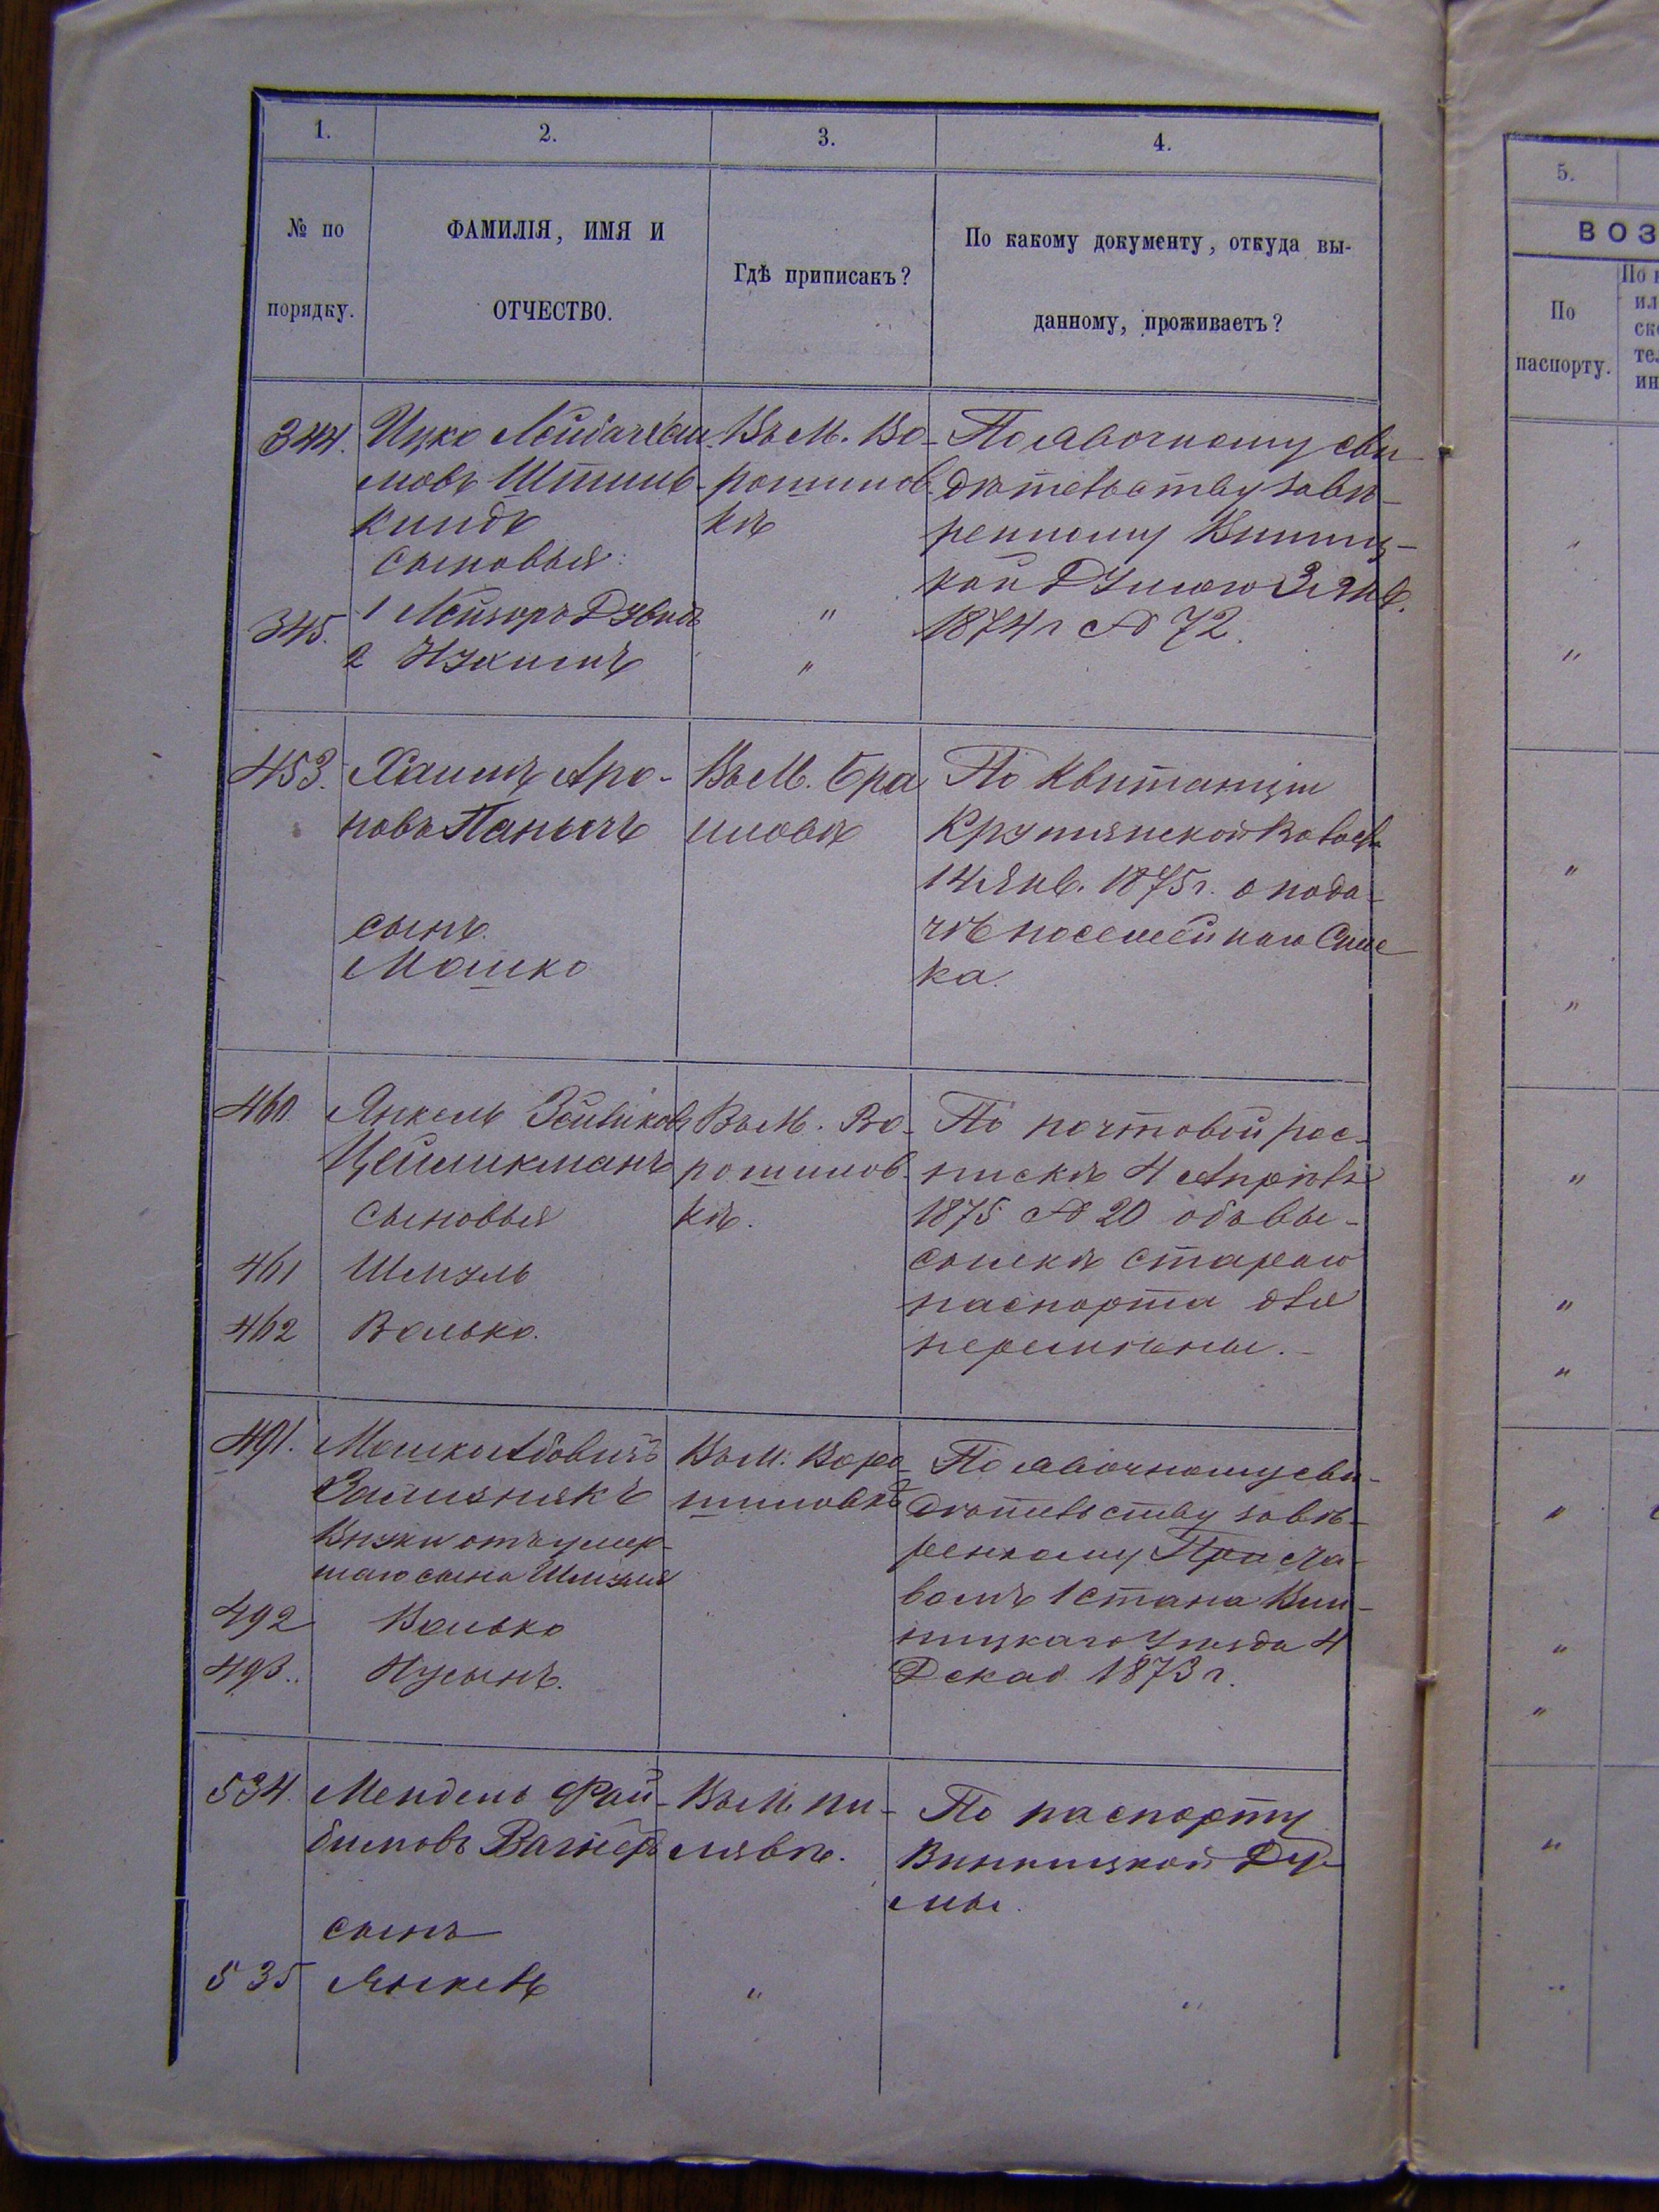 1.
2.
3.
4.
№ по порядку.
ФАМИЛІЯ, ИМЯ И
ОТЧЕСТВО.
Гдѣ приписакъ?
По какому документу, откуда вы-
данному, проживаетъ?
344.
Ицко
мовъ Штиль-
киндъ
Сыновья:
345.
1 Лейзоръ Дувидъ
2 Нухимъ
Въ М. Во-
рошилов-
кѣ
"
"
По явочному сви-
дѣтельству завѣ-
ренному Винниц-
кой Думою 3 Янв.
1874 г № 72.
453.
Хаимъ Аро-
новъ Панычъ
сынъ
Мошко
Въ М. Бра
иловѣ
По квитанціи
14 Янв. 1875 г. о пода-
чѣ посемейнаго Спис
ка.
460
Янкель Зейликовъ
Цейликманъ
Сыновья
461
Шмуль
462
Волько.
Въ М. Во-
рошилов-
кѣ.
По почтовой рос-
пискѣ 4 Апрѣля
1875 № 20 объ вы-
сылкѣ стараго
паспорта для
перемѣны.-
491.
Мошко Абовичъ
Зализнякъ
Внуки отъ умер-
шаго сына Шмуля
492
Волько
493.
Нусынъ.
Въ М. Воро-
шиловкѣ
По явочному сви-
дѣтельству завѣ-
ренному
вомъ 1 стана Вин-
ницкаго Уѣзда 4
Декаб 1873 г.
534.
Мендель Фай-
бишовъ Вагнеръ
сынъ
535
Янкель
Въ М. Пи-
лявѣ.
"
По паспорту
Винницкой Ду-
мы.
"
5.
ВОЗ
По
паспорту.
По
ил
ск
те
ин
"
"
"
"
"
"
"
"
"
"
"
"